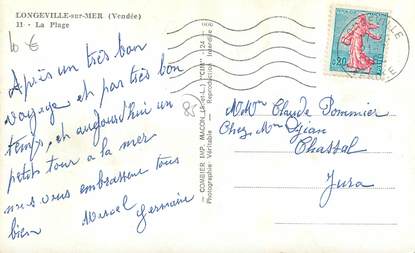 LONGEVILLE-sur-MER (Vendée)
11 - La Plage
10 €
Après un très bon
voyage, et par très bon
temps, et aujourd'hui un
petit tour a la mer
nous vous embrassent tous
bien Marcel Germaine
85
COMBIER IMP. MACON (S.-et-L.) "CIM"
Photographie Véritable - Reproduction Interdite
0,20
M. Mme Claude Pommier
Chez Mme Djian
Chassal
Jura